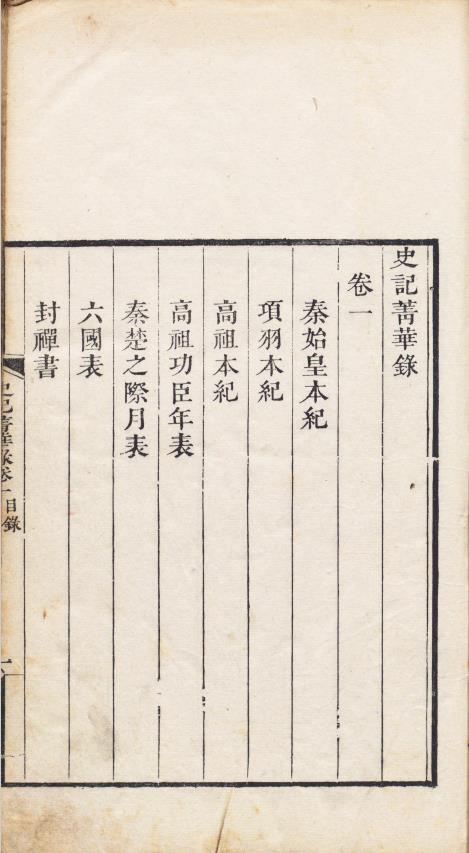 史記菁華錄
卷一
秦始皇本紀
項羽本紀
高祖本紀
高祖功臣年表
秦楚之際月表
六國表
封禪書
史記菁華錄卷一目錄